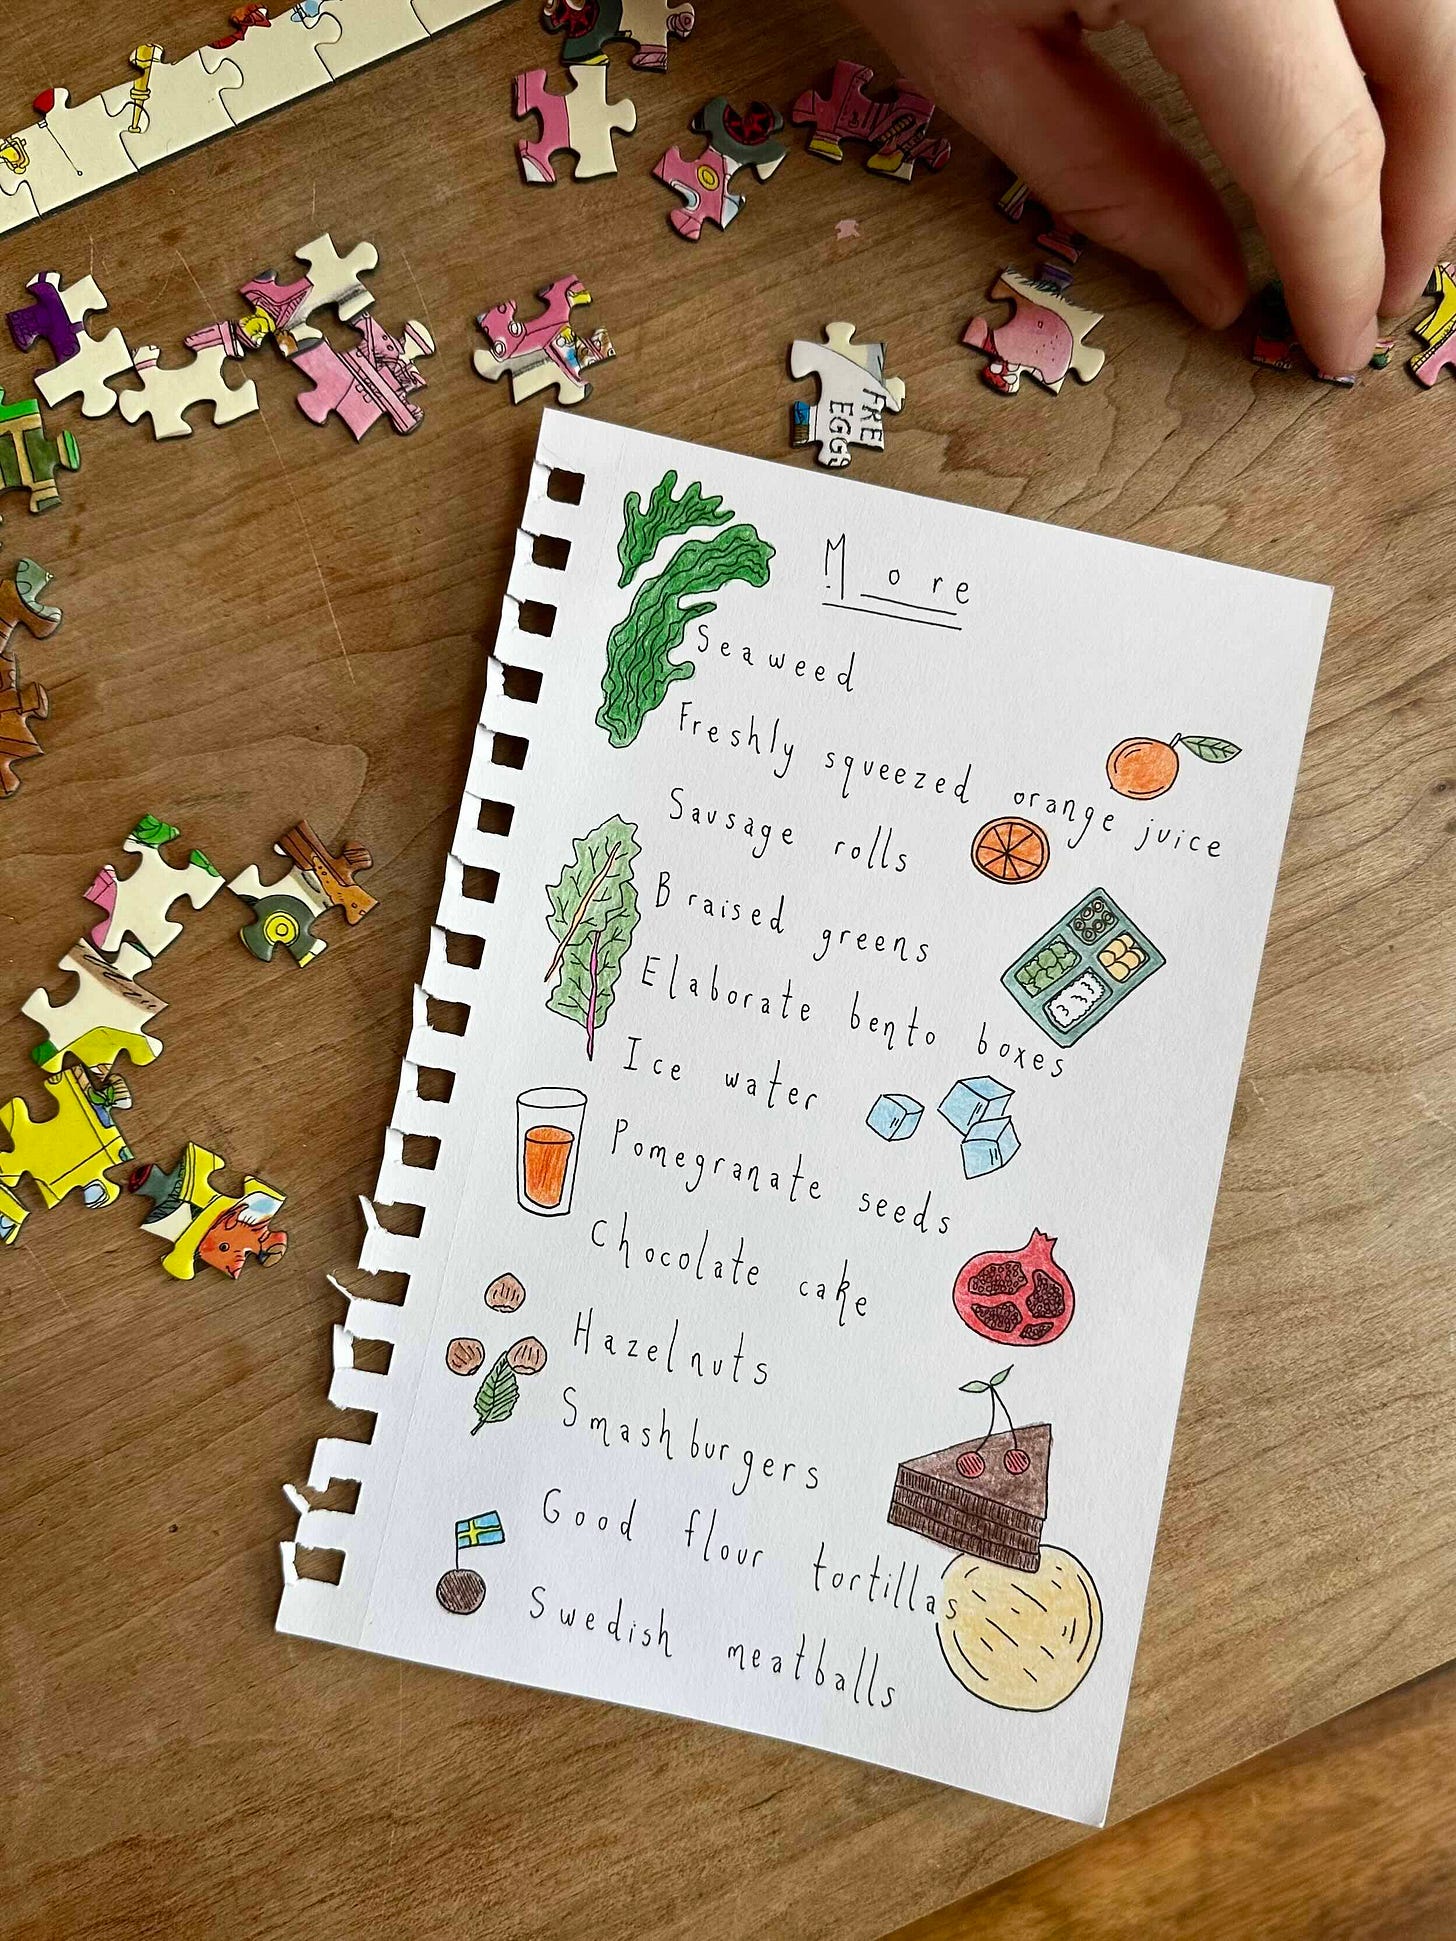 FRE
EGGS
More
Seaweed
Freshly squeezed orange juice
Sausage rolls
Braised greens
Elaborate bento boxes
Ice water
Pomegranate seeds
Chocolate cake
Hazelnuts
Smash burgers
Good flour tortillas
Swedish meatballs